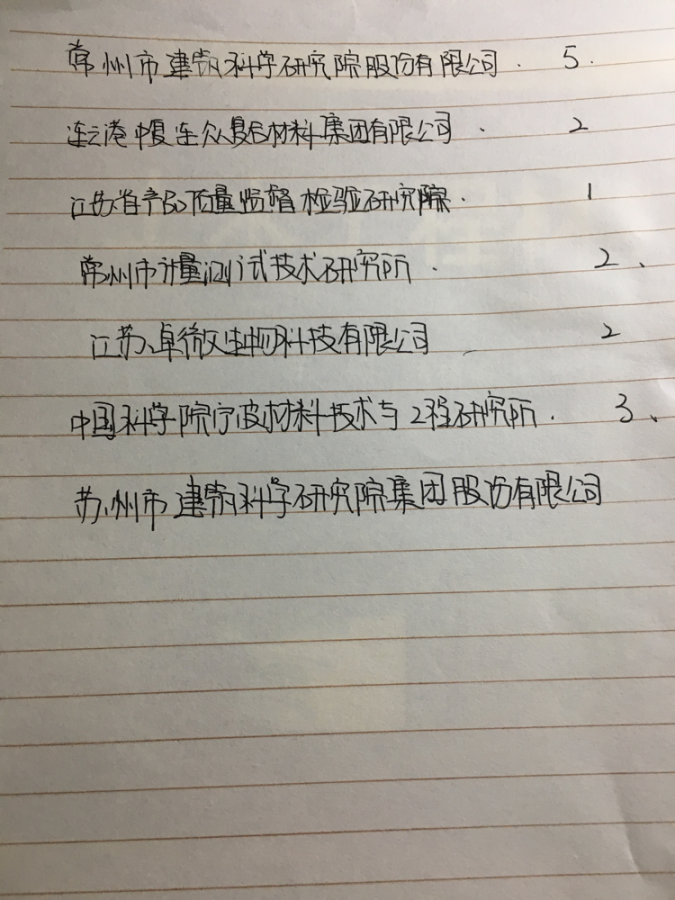 常州市建筑科学研究院股份有限公司. 5.
连云港中复连众复合材料集团有限公司. 2
江苏省产品质量监督检验研究院. 1
常州市计量测试技术研究所. 2、
江苏卓微生物科技有限公司 2
中国科学院宁波材料技术与工程研究所. 3、
苏州市建筑科学研究院集团股份有限公司